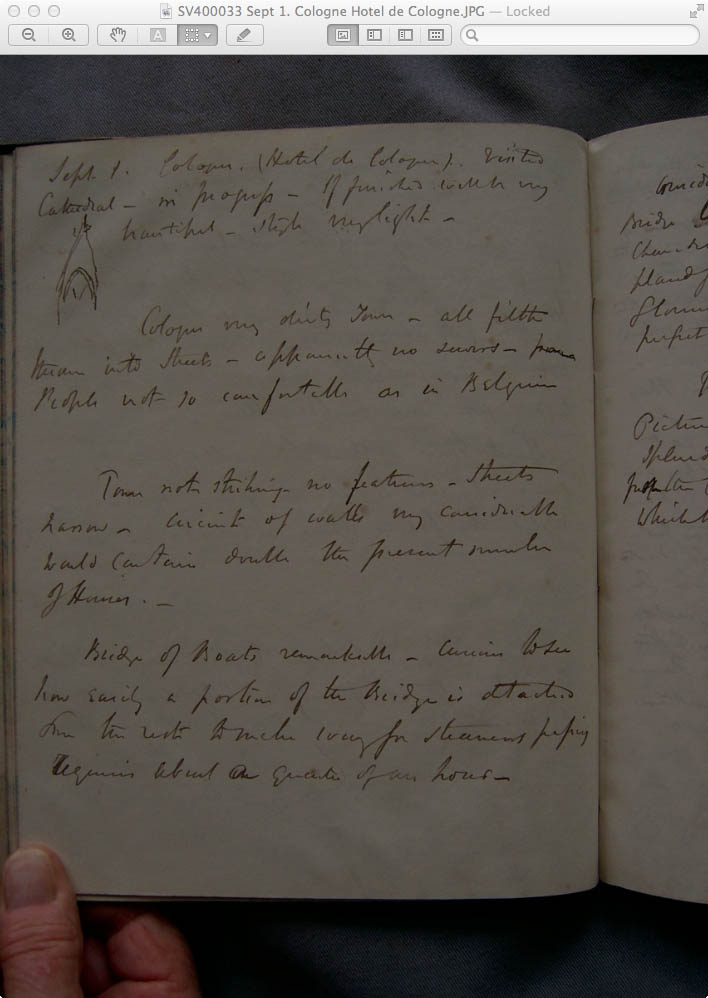 SV400033 Sept 1. Cologne Hotel de Cologne.JPG — Locked
Sept. 1. Cologne. (Hotel de Cologne). Visited
Cathedral – in progress – If finished will be very
beautiful – style very light –
Cologne very dirty Town – all filth
thrown into Streets – apparently no sewers –
People not so comfortable as in Belgium
Town not striking no features – Streets
narrow – circuit of walls very considerable
would contain double the present number
of Houses. –
Bridge of Boats remarkable – Curious to see
how easily a portion of the Bridge is detached
from the rest to make way for steamers passing
requires about a quarter of an hour –
Bridge
Pictur
Splend
which